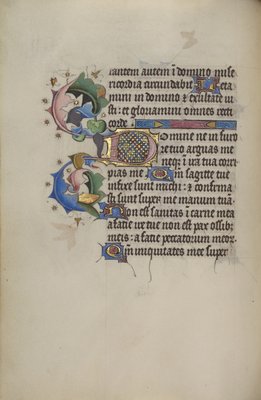 rantem autem i domino mise
ricordia circundabit Leta
mini in domino & exultate iu
sti: et gloriamini omnes recti
corde
Domine ne in furo
re tuo arguas me
neq; i ira tua corri
pias me Qm sagitte tue
infixe sunt michi: & confirma
sti sunt super me manum tuā
Non est sanitas i carne mea
a facie ire tue non est pax ossib;
meis: a facie peccatorum meor
Qm iniquitates mee super